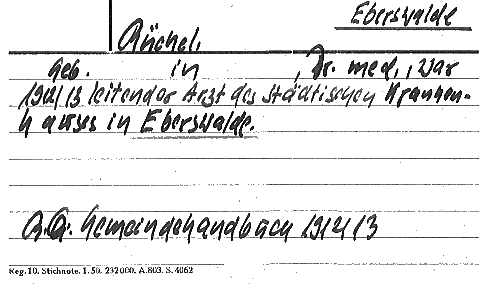 Eberswalde
Rüchel,
geb. in , Dr. med., war
1912/13 leitender Arzt des städtischen Kranken-
hauses in Eberswalde.
Gemeindehandbuch 1912/13
Reg. 10. Stichnote. 1. 50. 232000. A. 803. S. 4062